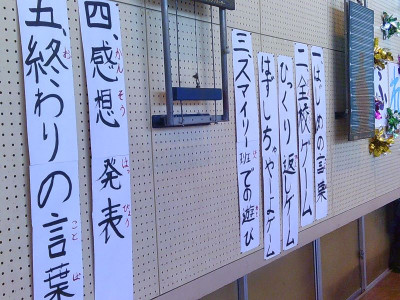 一、はじめの言葉
二、全校ゲーム
ひっくり返しゲーム
はずしちゃやーよゲーム
三、ズマイリー班での遊び
四、感想発表
五、終わりの言葉